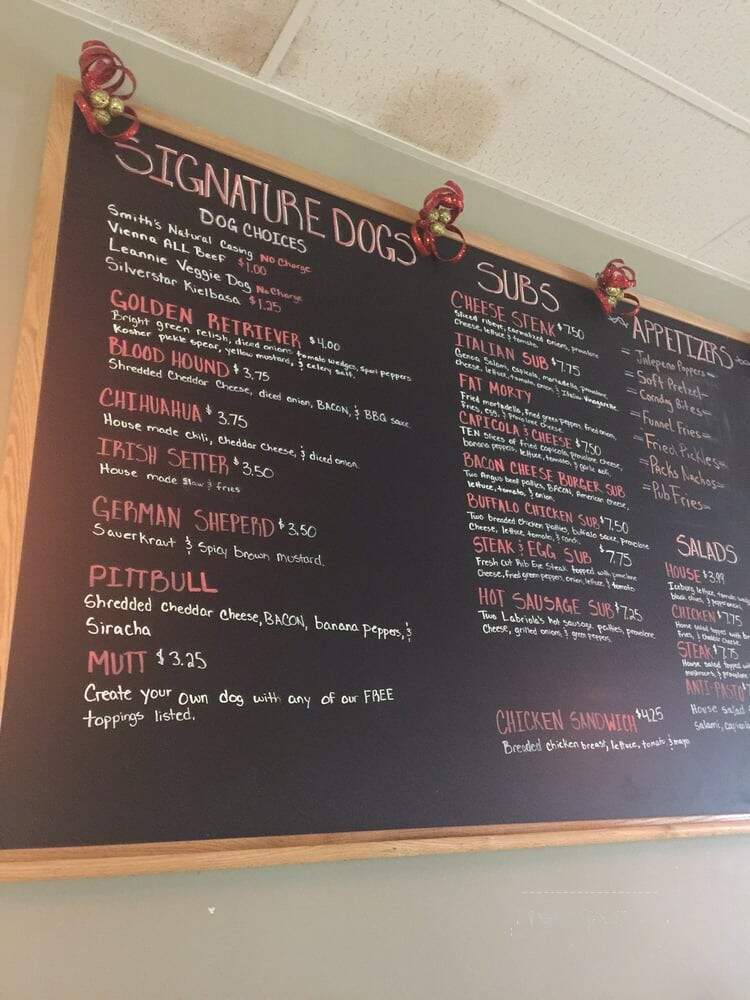 SIGNATURE DOGS
DOG CHOICES
Smith's Natural Casing No Charge
Vienna ALL Beef $1.00
Leannie Veggie Dog No Charge
Silverstar Kielbasa $1.25
GOLDEN RETRIEVER $4.00
Bright green relish, diced onions tomato wedges, sport peppers
Kosher pickle spear, yellow mustard, & celery salt.
BLOOD HOUND $3.75
Shredded Cheddar Cheese, diced onion, BACON, & BBQ sauce
CHIHUAHUA $3.75
House made chili, cheddar cheese, & diced onion.
IRISH SETTER $3.50
House made slaw & fries
GERMAN SHEPERD $3.50
Sauerkraut & Spicy brown mustard.
PITTBULL
Shredded cheddar cheese, BACON, banana peppers, &
Siracha
MUTT $3.25
Create your own dog with any of our FREE
toppings listed.
SUBS
CHEESE STEAK $7.50
Sliced ribeye, carmalized onions, provolone
cheese, lettuce & tomato.
ITALIAN SUB $7.75
Genoa Salami, capicola, mortadella, provolone
cheese, lettuce, tomato, onion & Italian Vinaigrette.
FAT MORTY
Fried mortadella, fried green peppers, fried onion,
fries, egg, & provolone cheese.
CAPICOLA & CHEESE $7.50
TEN slices of fried capicola, provolone cheese,
banana peppers, lettuce, tomato, & garlic aoli.
BACON CHEESE BURGER SUB
Two Angus beef patties, BACON, American cheese,
lettuce, tomato, & onion.
BUFFALO CHICKEN SUB $7.50
Two breaded Chicken patties, buffalo sauce, provolone
Cheese, lettuce, tomato, & ranch.
STEAK & EGG SUB $7.75
Fresh Cut Rib Eye Steak topped with provolone
Cheese, fried green peppers, onion, lettuce, & tomato
HOT SAUSAGE SUB $7.25
Two Labriola's hot sausage patties, provolone
Cheese, grilled onions & green peppers.
CHICKEN SANDWICH $4.25
Breaded chicken breast, lettuce, tomato & mayo
APPETIZERS
Jalepeno Poppers
Soft Pretzel
Corndog Bites
Funnel Fries
Fried Pickles
Nachos
Pub Fries
SALADS
HOUSE $3.99
Iceburg lettuce, tomato
black olives, & pepperoncini
CHICKEN $7.75
House salad topped with
Fries, & Cheddar Cheese.
STEAK $7.75
House salad topped
mushrooms & provolone
ANTI-PASTO
House salad
salami, capicola